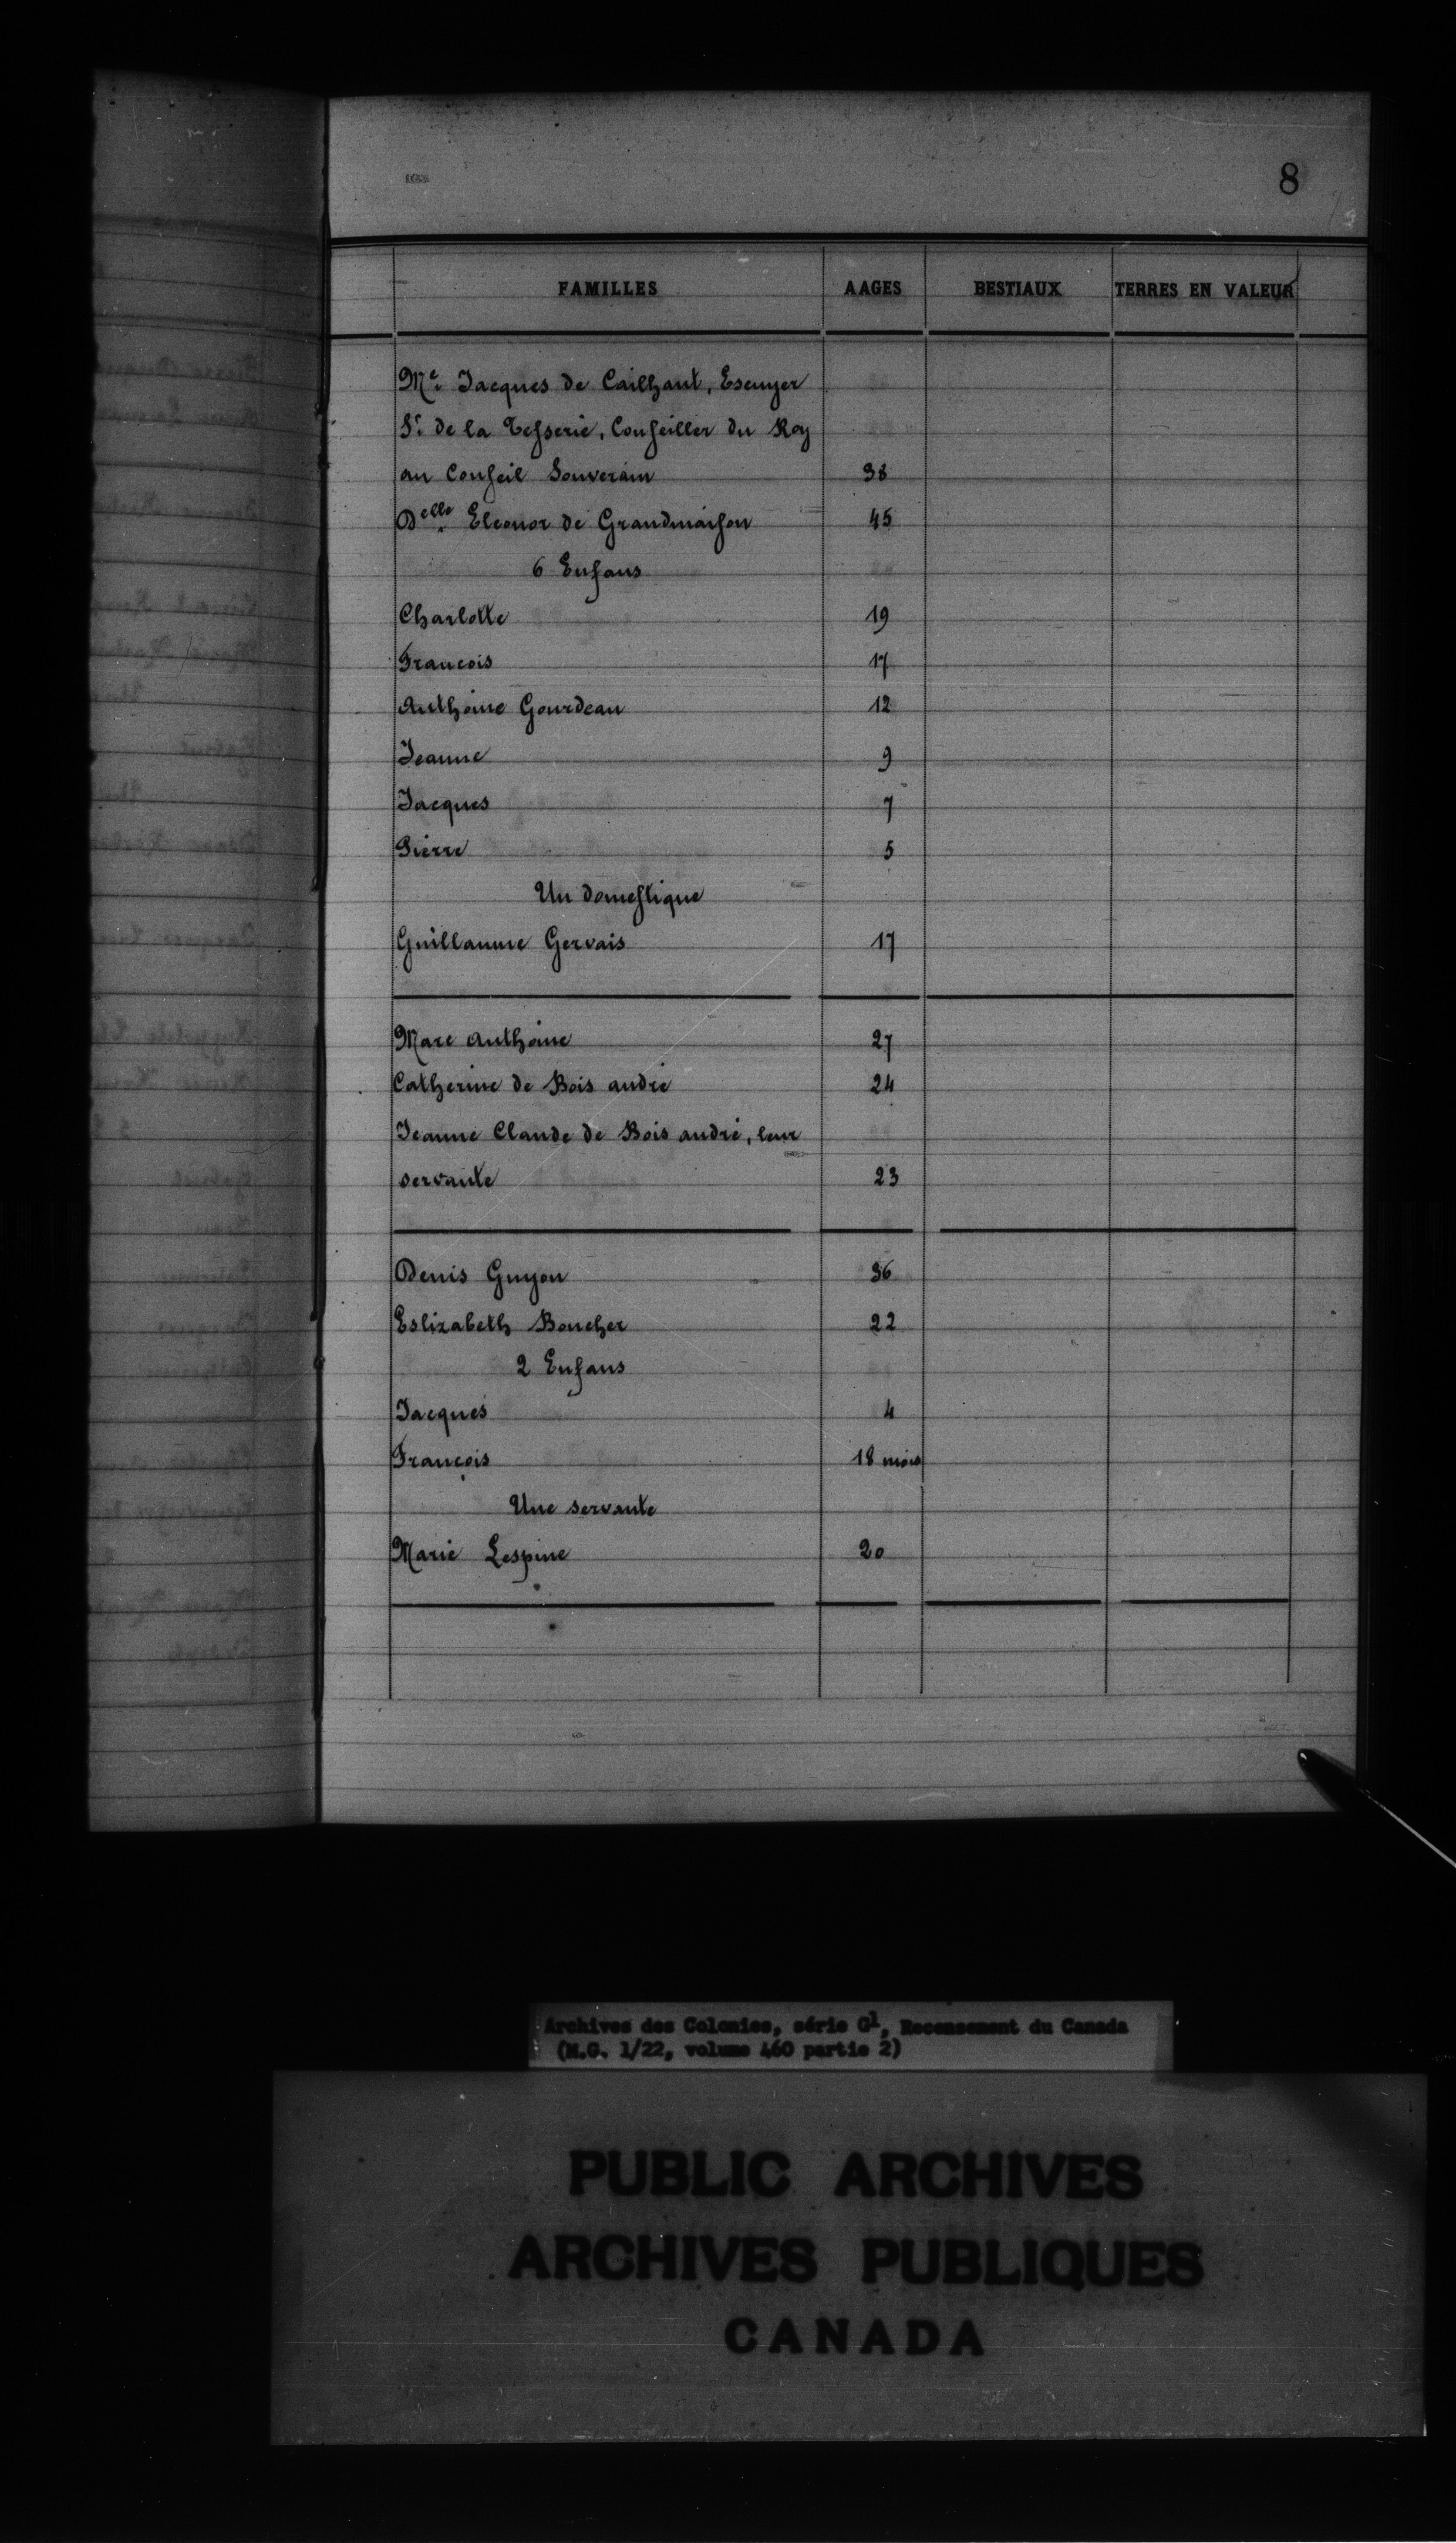 8
FAMILLES AAGES BESTIAUX TERRES EN VALEUR
Me. Jacques de Cailhaut, Escuyer
Sr. de la Tesserie, Conseiller du Roy
au Conseil Souverain 38
Delle. Eleonor de Grandmaison 45
6 Enfans
Charlotte 19
Francois 17
Anthoine Gourdeau 12
Jeanne 9
Jacques 7
Pierre 5
Un domestique
Guillaume Gervais 17
Marc Anthoine 27
Catherine de Bois andré 24
Jeanne Claude de Bois andré, leur
servante 23
Denis Guyon 36
Eslizabeth Boucher 22
2 Enfans
Jacques 4
François 18 mois
Une servante
Marie Lespine 20
Archives des Colonies, série G1, Recensement du Canada
(M.G. 1/22, volume 460 partie 2)
PUBLIC ARCHIVES
ARCHIVES PUBLIQUES
CANADA